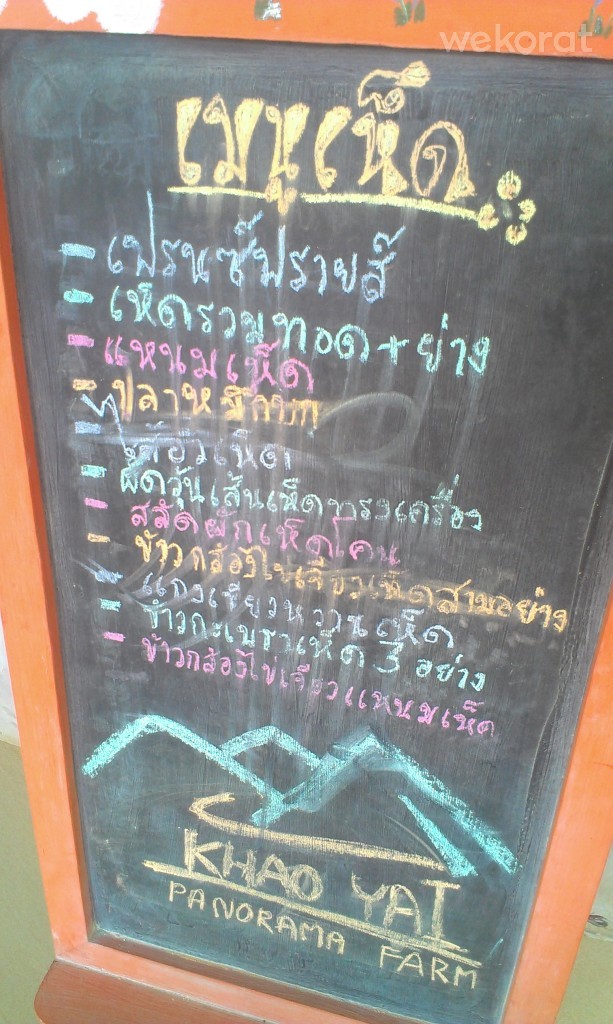 wekorat
เมนูเห็ด
- เฟรนซ์ฟรายส์
- เห็ดรวมทอด + ย่าง
- แหนมเห็ด
- ปลาหมึก
- เห็ด
- ผัดวุ้นเส้นเห็ดทรงเครื่อง
- สลัดผักเห็ดโคน
- ข้าวกล้องไข่เจียวเห็ดสามอย่าง
- แกงเขียวหวานเห็ด
- ข้าวกะเพราเห็ด 3 อย่าง
- ข้าวกล้องไข่เจียวแหนมเห็ด
KHAO YAI
PANORAMA FARM